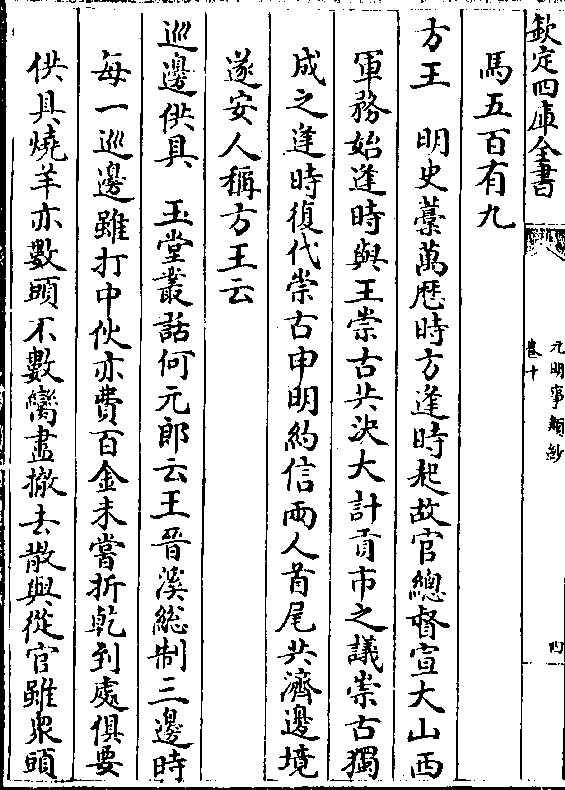 欽定四庫全書
元明事類鈔
卷十
四
馬五百有九
方王　明史藁萬歴時方逢時起故官總督宣大山西
軍務始逢時與王崇古共決大計貢市之議崇古獨
成之逢時復代崇古申明約信兩人首尾共濟邊境
遂安人稱方王云
巡邊供具　玉堂叢話何元郎云王晉溪總制三邊時
每一巡邊雖打中伙亦費百金未嘗折乾到處俱要
供具燒羊亦數頭不數臠盡撤去散與從官雖衆頭